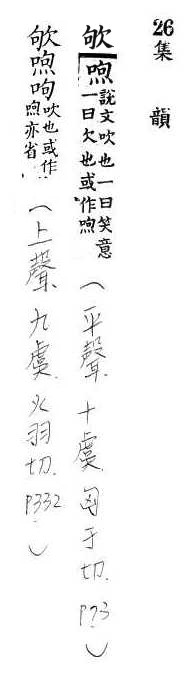 26集韻
欨喣說文吹也一曰笑意
一曰欠也或作喣
(平聲.十虞匈于切.P73)
欨喣呴吹也或作
喣亦省
(上聲.九虞火羽切.P332)